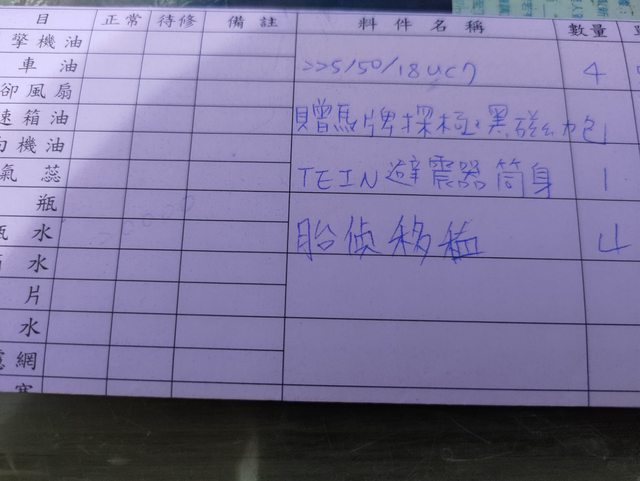 目 正常 待修 備註 料件名稱 數量
擎機油
車油 225/50/18 UC7 4
卻風扇
速箱油 贈馬牌探極黑磁力包 1
向機油
氣蕊 TEIN避震器筒身 1
瓶
瓦水 胎偵移植 4
水
片
水
濾網